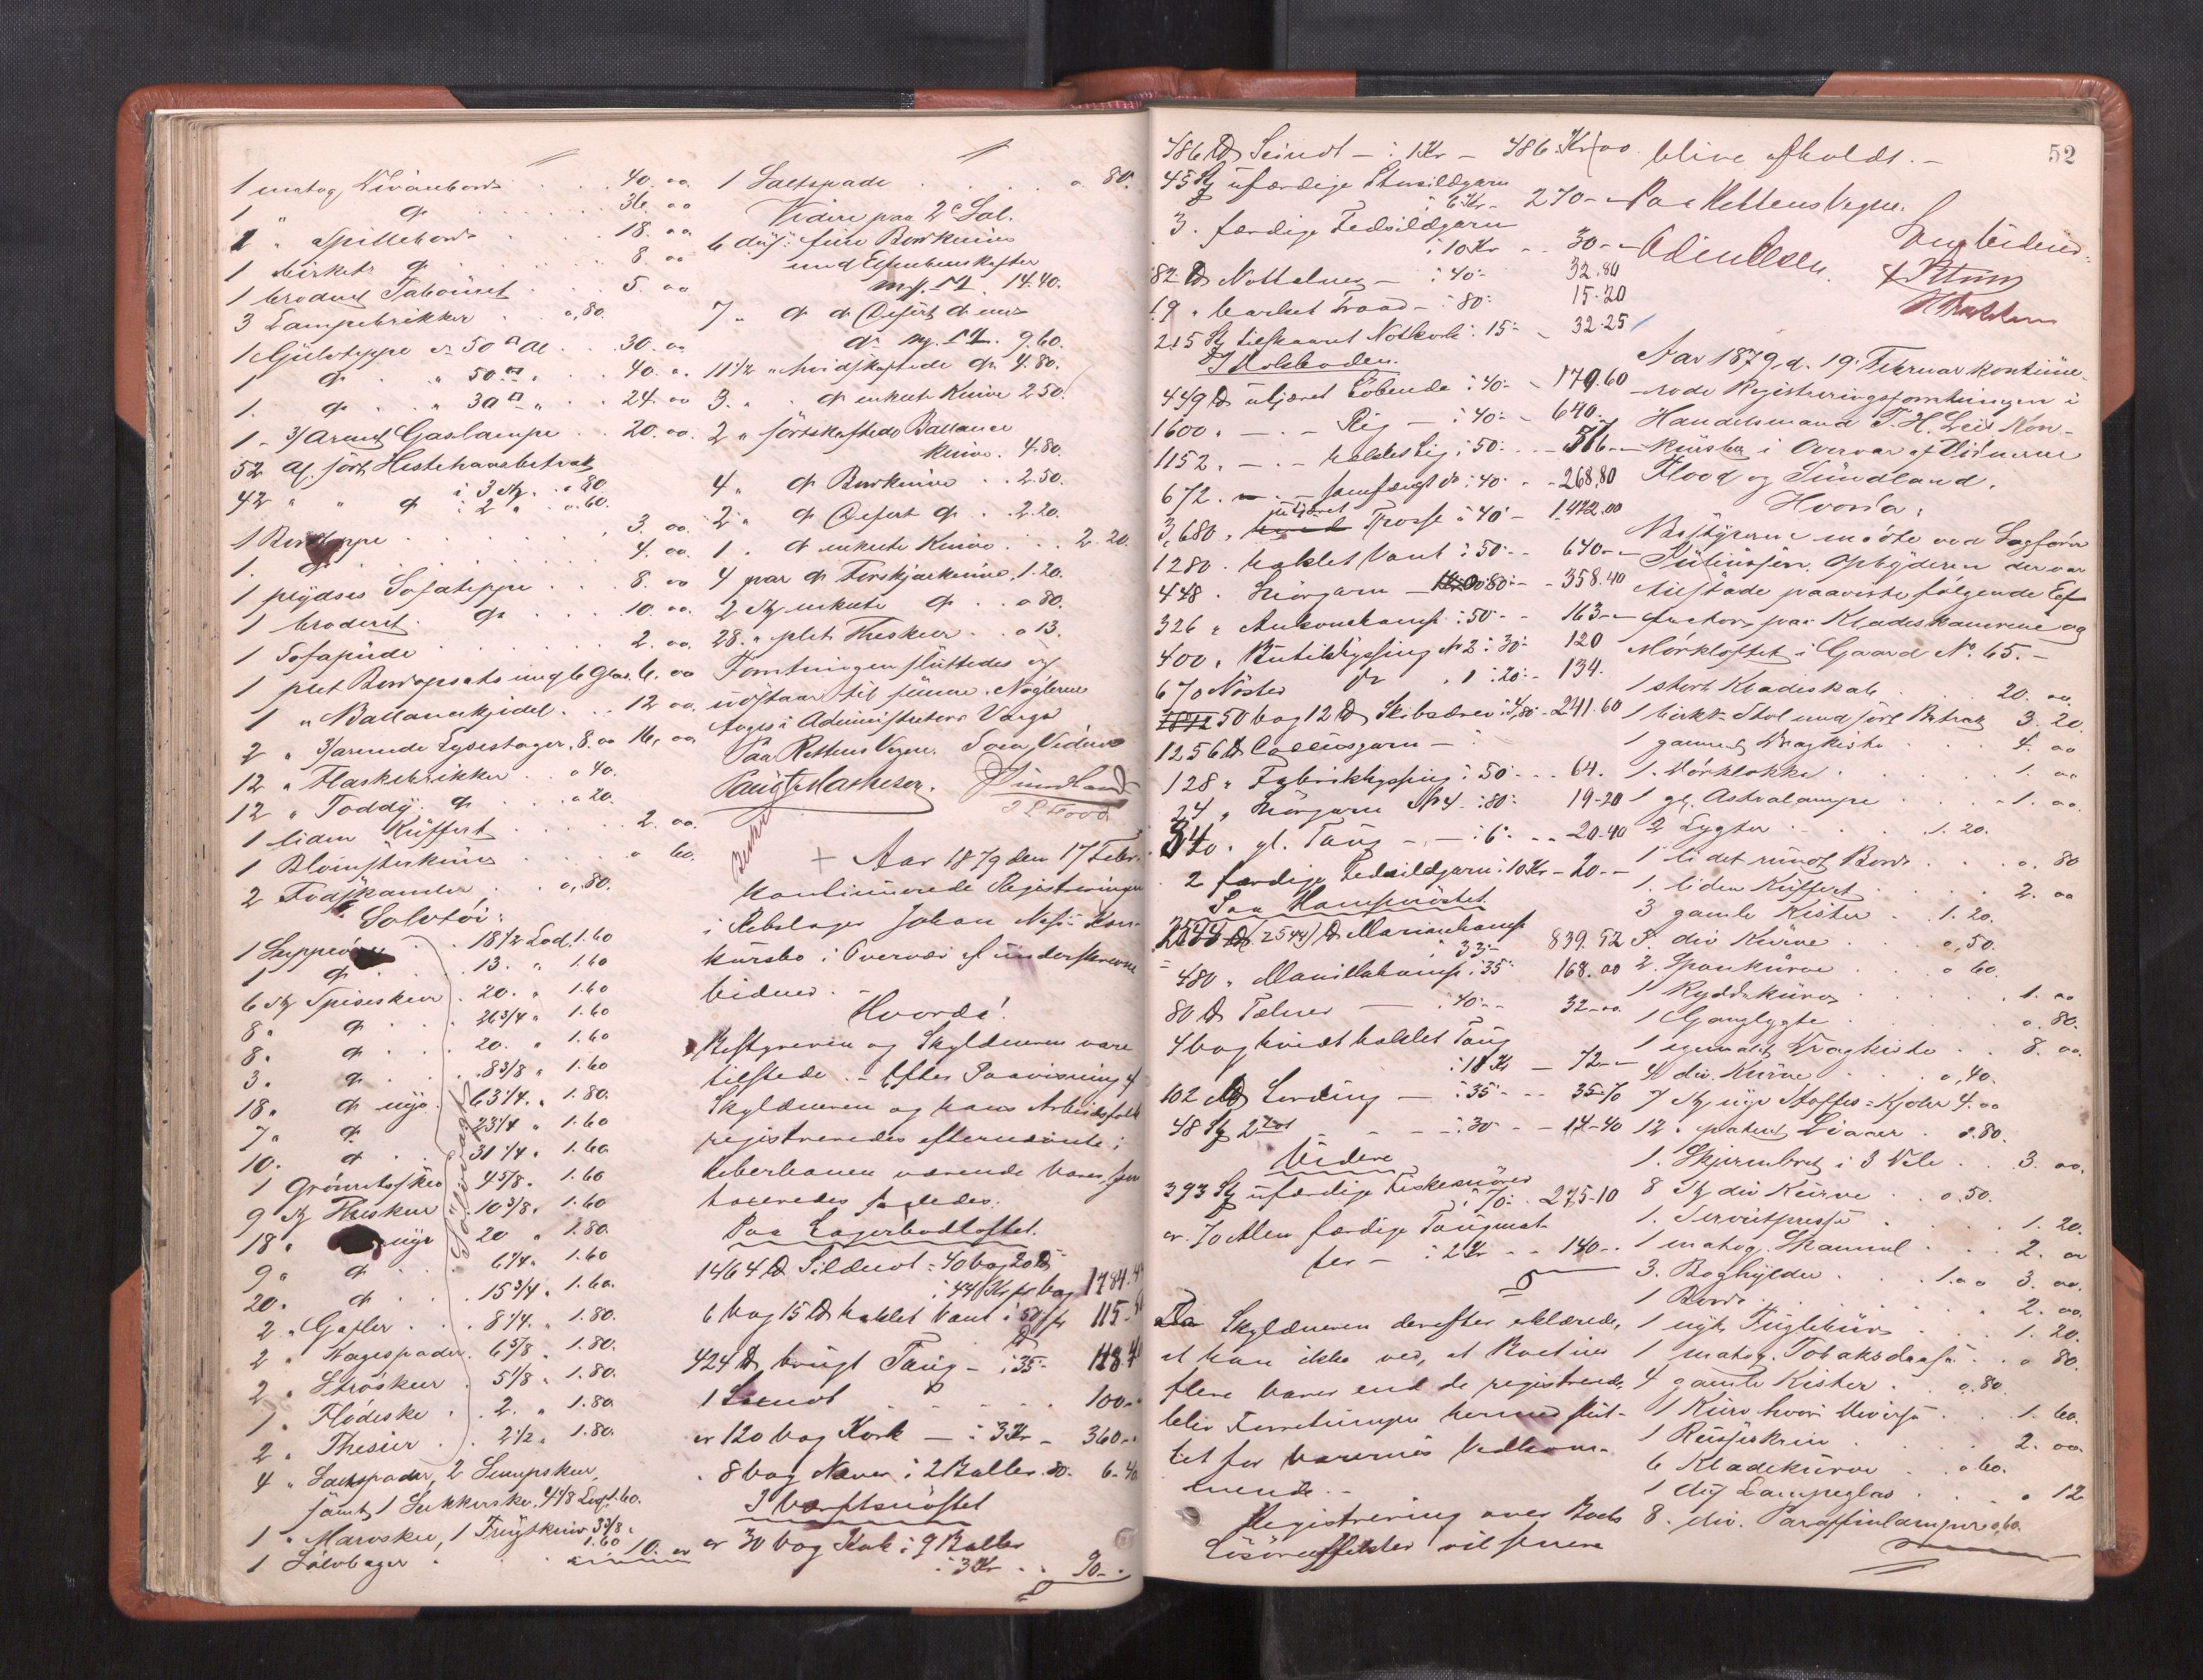 1 mahog. Divanbord . . . 40. oo
1 " do . . . . 36. oo
1 " Spillebord . . . 18. oo
1 birkets do . . . 8. oo
1 broderet Tabouret . . . 5. oo
3 Lampebrikker . . o,80.
1 Gulvteppe à 50 □ Al . . 30. oo
1 do . . " 50 □ " . . 40. o.
1. do . . " 30 □ " . . 24. oo
1 - 3/Armet Gaslampe . . 20. oo.
52 Al. sort Hestehaarsbetræk
i 3 Stk. . o 80
42 " " do i 2 " . o. 60.
1 Bordteppe . . . . 3. oo.
1. do . . . . 4. oo.
1 plydses Sofateppe . . . 8. oo
1 broderet do . . . 10. oo.
1 Sofapude . . . . 2. oo.
1 plet Bordopsats med 6 Glas. 6. oo
1 " Ballancekjedel . . . 12 oo.
2 " 3/armede Lysestager, 8. oo 16, oo
12 " Flaskebrikker . . o 40.
12 " Toddy do . . o 20.
1 liden Kuffert . . . 2. oo.
1 Blomsterkurv . . . o 60.
2 Fodskamler . . o,80.
Solvtøi:
1 Suppeøse . . 18 1/2 Lod. 1.60
1 do . . 13. " 1.60
6 Stk Spiseskeer . 20. " 1.60
8 " do . . 26 3/4 " 1.60
8. do . . 20. " 1.60
3. do . . 8 3/8 " 1.60
18 " do nye . 63 1/4. " 1.80.
7 " do . . 23 1/4 " 1.60
10. do . . 31 1/4. 1.60
1 Grønretsske 4 5/8. 1.60
9 Stk Theskeer 10 3/8. 1.60
18 " nye 20 " 1.80.
9 " do . . 6 1/4. 1.60
20. do . . 15 3/4. 1.60.
2 " Gafler . . 8 1/4. " 1.80.
2 " Kagespader . 6 5/8 " 1.80.
2 " Strøskeer . 5 1/8 " 1.80.
1 " Flødeske . 2. " 1.80
2 " Thesier . . 2 1/2 " 1.80.
4 " Saltspader, 2 Sennepskeer,
samt 1 Sukkerske. 4 1/8 Lod 1.60.
1 " Marvske, 1 Frugtkniv 3 3/8 "
1.60
1 Sølvbæger . . . 10. oo
1 Saltspade . . . . o 80.
Videre paa 2d Sal.
6 dus: fine Bordknive
med Elfenbensskafter
14.40.
7 " do do Desert do med
do 9.60.
11 1/2 " hvidskaftede do 4.80.
3. " do enkelte Knive 2.50.
2 " sortskaftede Ballance
Knive. 4.80.
4 " do Bordknive . . 2.50.
2 " do Desert do . . 2.20.
1 " do enkelte Knive . . . 2.20.
4 par do Forskjærknive, 1.20.
2 Stk enkelte do . . o 80.
28. " plet Theskeer . . o 13.
Forretningen sluttedes og
udstaar til senere. Nøglerne
toges i Administrators Varge
Paa Rettens Vegne. Som Vidner
Sundland
J P Flood
+ Aar 1879 den 17 Febr.
kontinuerede Registreringen
i Rebslager Johan Ness's Kon-
kursbo i Overvær af underskrevne
Vidner. -
Hvorda!
Bestyreren og Skyldneren vare
tilstede. - Efter Paavisning af
Skyldneren og hans Arbeidsfolk
registreredes efternævnte i
Reberbanen værende Varer, som
taxeredes saaledes.
Paa Lagerbodloftet.
1464 ℔ Sildenot = 40 Vog 24 ℔
à 44 Kr pr Vog 1784.
6 Vog 15 ℔ haklet Vant à 50 pr ℔ 115-
424 ℔ brugt Taug - à 35 - 148.40
1 Seenot . . . . . 100-
er 120 Vog Kork - à 3 Kr - 360-
. 8 Vog Næver i 2 Baller . 80 - 6-40
I Værftsnøstet
er 30 Vog Kork i 9 Baller
à 3 Kr . . 90-.
52
486 ℔ Seinot - à 1 Kr - 486 Kr oo
45 Stk ufærdige Storsildgarn
à 6 Kr - 270-
3. færdige Fedsildgarn
à 10 Kr - - 30-
82 ℔ Nottelner - à 40 - 32.80
19 " barket Traad - à 80 - 15-20
215 Stk tilskaaret Notkork à 15 - 32-25
I Kolsboden.
449 ℔ utjæret Løbende à 40 - 179.60
1600. - - Rig - à 40 - - 640.
1152. - - haklet Rig à 50 - - 576-
672. - - à 40 - - 268,80
3,680. utjæret Trosse à 40 - 1.472.00
1280. haklet Vant à 50 - - 640-
448. Snørgarn - à 80 - - 358.40
326 " à 50 - - 163-
400. No 2 à 30 - 120
670 Nøster do " 1 à 20 - 134.
50 Vog 12 ℔ Skibsdrev à 4,80 - 241.60
1256 ℔ Callinsgarn - à
128 " Fabrikhyssing à 50 - - 64.
24 " Snørgarn No 4 - à 80 - 19-20
340. gl. Taug - - à 6 - - 20-40
2 færdige Fedsildgarn à 10 Kr - 20--
Paa Hampenøstet
(2544) ℔ Marienhamp
à 33 - 839.52
480 " Manillahamp à 35 168.00
80 ℔ Tælner - à 40 - - 32-oo
4 Vog hvidt haklet Taug
à 18 Kr - 72--
102 ℔ Lording - à 35 - - 35-70
48 Stk - - - à 30 - - 14-40
Videre
393 Stk ufærdige Fiskesnører
à 70 - . 275-10
er 70 Alen færdige Taugmat-
ter - à 2 Kr - - 140-.
Skyldneren derefter erklærede,
at han ikke ved, at Boet eier
flere Varer end de registrerede,
blev Forretningen hermed slut-
tet for Varernes Vedkom-
mende. -
Registrering over Boets
Løsøreeffekter vil senere
blive afholdt. -
Paa Rettens Vegne.
Odin Olsen.
Som Vidner:
Aar 1879, d. 19. Februar kontinue-
rede Registreringsforretningen i
Handelsmand T. H. Leis Kon-
kursbo i Overvær af Vidnerne
Flood og Sundland.
Hvorda,
Bestyrerne mødte ved Sagfører
Julius Jin. Opbyderen der var
tilstede paaviste følgende Ef-
fecter, paa Klædeskamrene og
Mørkloftet i Gaard No. 65. -
1 stort Klædeskab . . 20. oo.
1 birkt Stol med sort Betræk 3.20.
1 gammel Dragkiste . . . 4. oo
1. . . . 1. oo
1 gl. Astralampe . . . - 1. oo.
2 Lygter . . . 1.20.
1 lidet rundt Bord . . . . o. 80
1. liden Kuffert . . . . 2. oo
3 gamle Kister . . 1.20.
5. div Kurve . . . o,50.
2. Spankurve . . . o 60.
1 Ryddekurv . . . . 1. oo
1 Ganglygte . . . . o. 80.
1 egemalet Dragkiste . . 8. oo.
4 div. Kurve . . . o,40.
7 Stk nye Kaffe-Kjeder 4. oo
12 " patent Liaaer . o.80.
1. Skjermbret i 3 Dele . 3. oo.
8 Stk div Kurve . . o,50.
1. Servietpresse . . . . 1. 20.
1 mahog. Skammel . . . 2. oo
3. Boghylder . . . 1.oo 3. oo.
1 Bord . . . . . . 2. oo.
1 nyt Fuglebur . . . . 1. 20.
1 mahog. Tobaksdaase . . o 80.
4 gamle Kister . . o.80.
1 Kurv hvori Diverse . . . 1. 60.
1 Reiseskrin . . . . 2. oo.
6 Klædekurve . . o 60.
1 dus Lampeglas . . . . o 12
8. div. Paraffinlamper o,60.